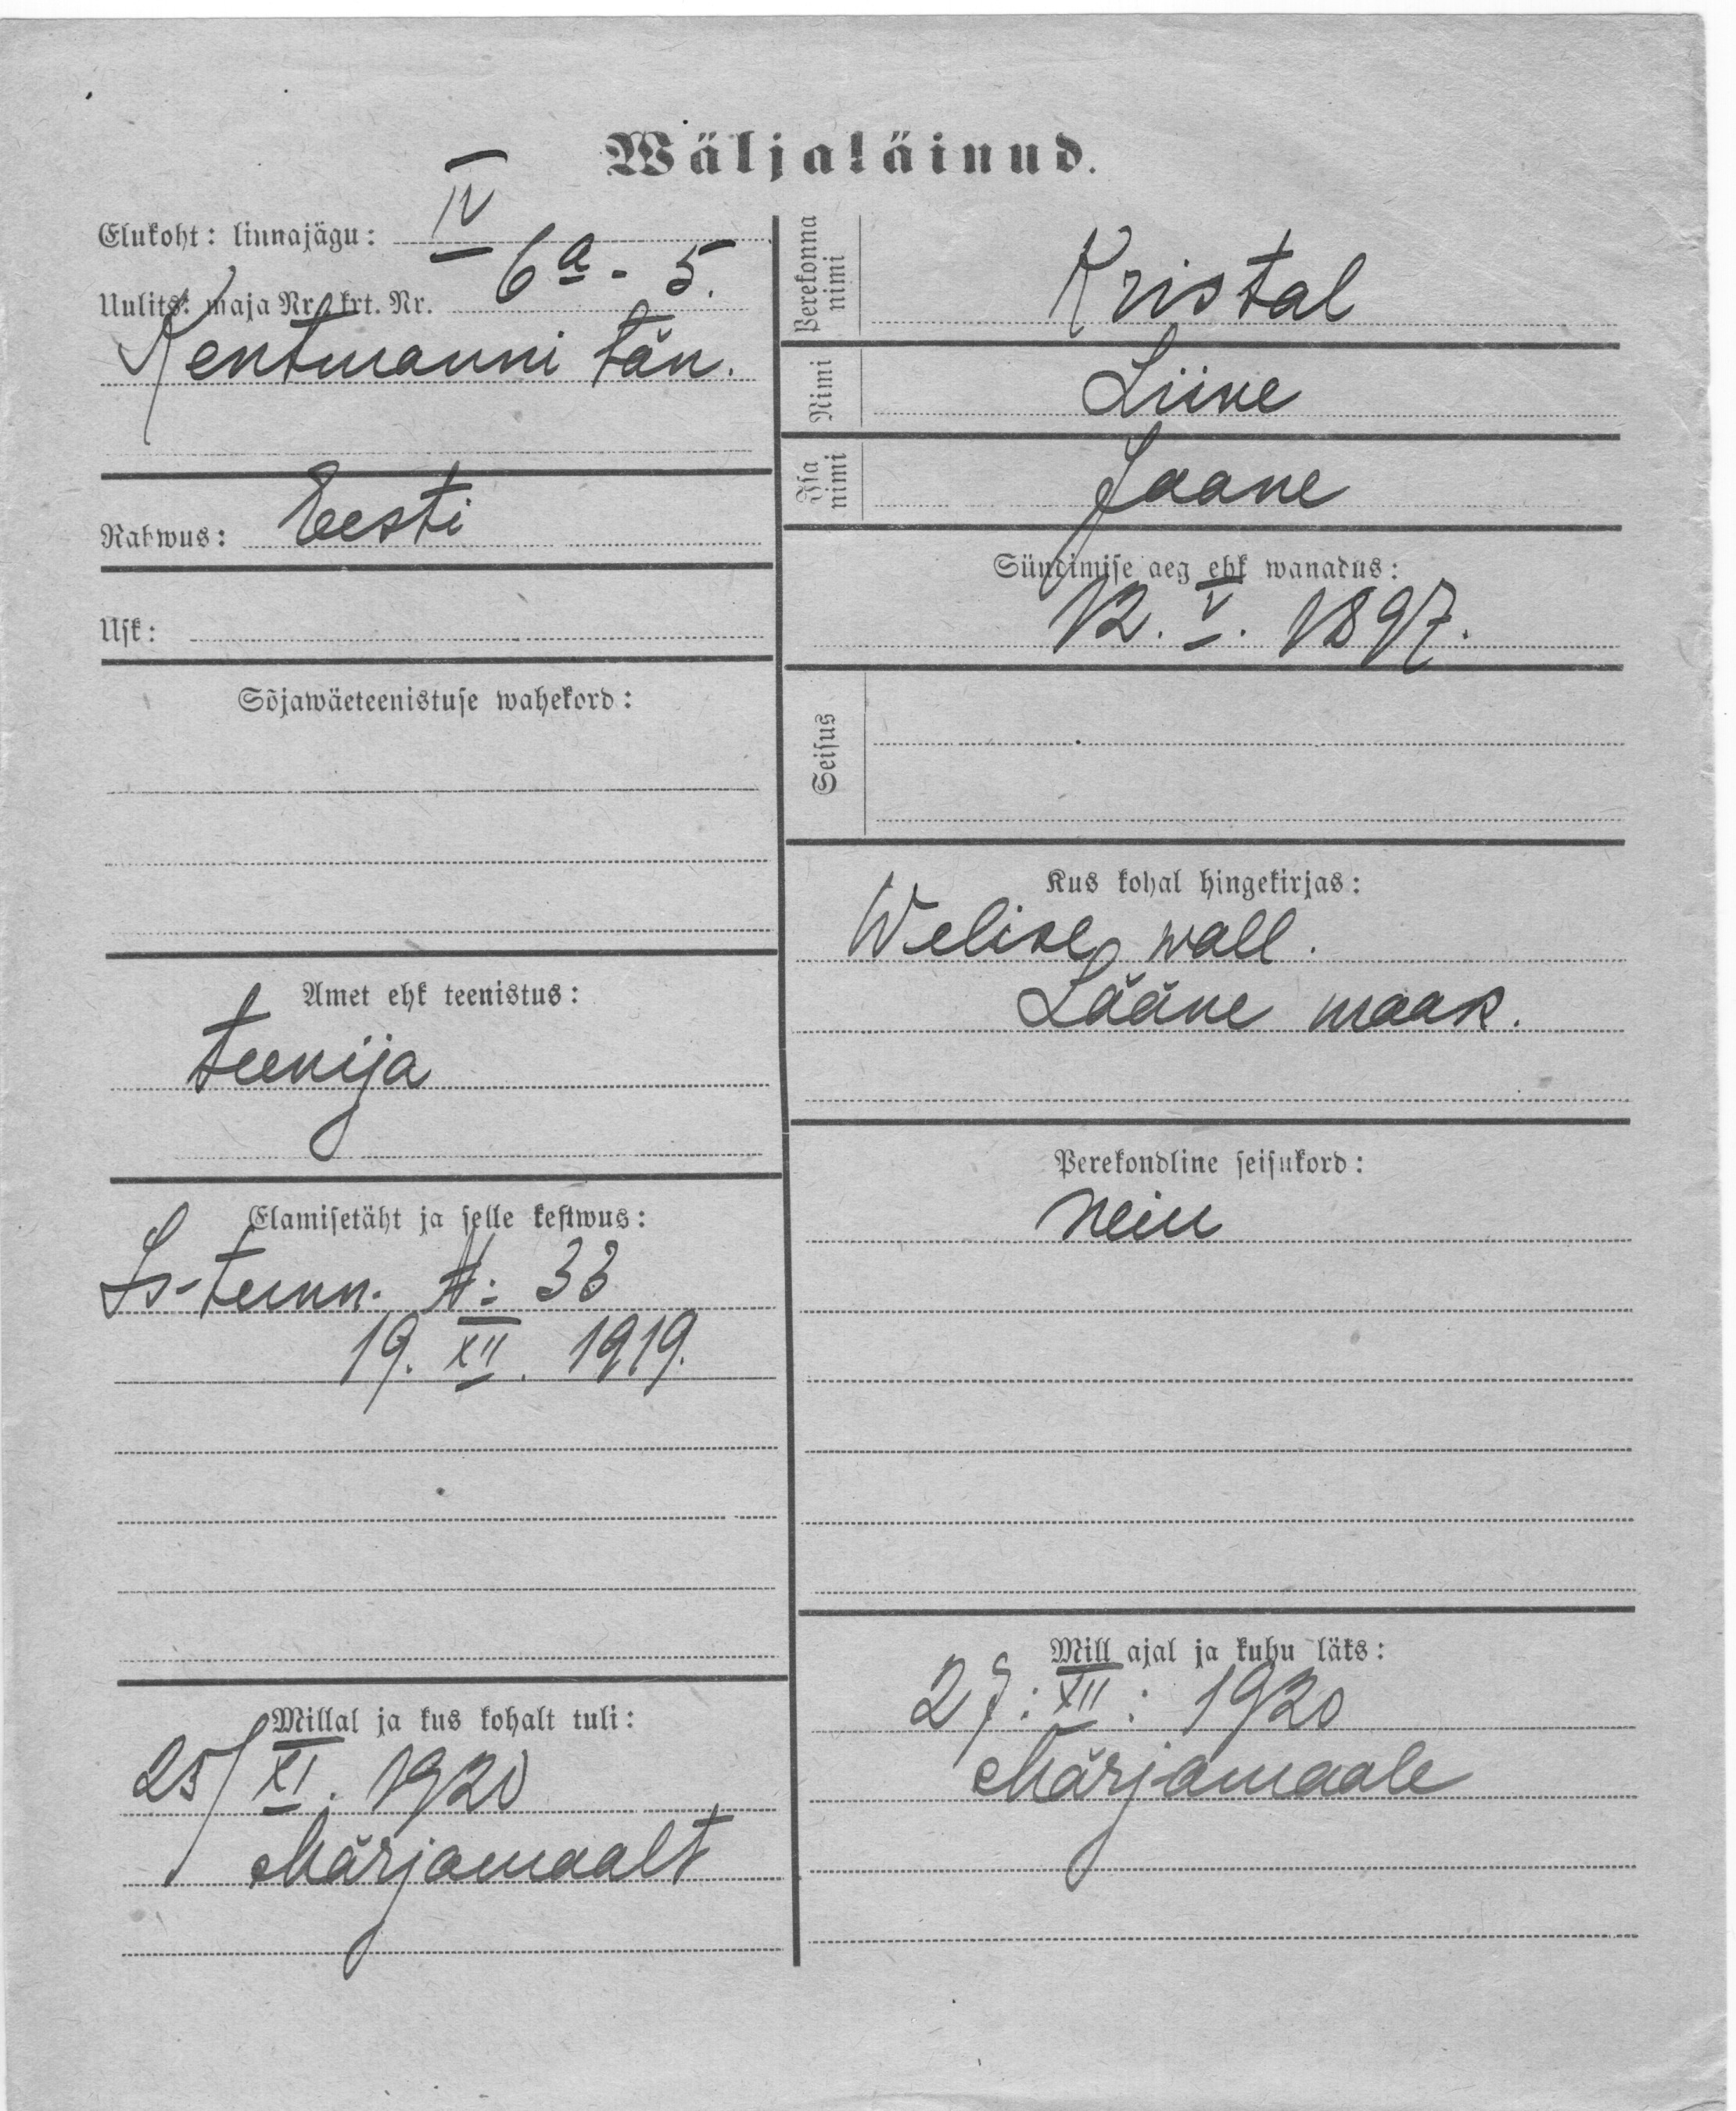 Wäljaläinud.
Elukoht: linnajägu: IV
Uulits: maja Nr. krt. Nr. 6a - 5.
Kentmanni tän.
Rahwus: Eesti
Usk:
Sõjawäeteenistuse wahekord:
Amet ehk teenistus:
teenija
Elamisetäht ja selle kestwus:
№ 33
19. XII. 1919.
Millal ja kus kohalt tuli:
25/XI. 1920
Märjamaalt
Perekonna nimi Kristal
Nimi Liine
Isa nimi Jaane
Sündimise aeg ehk wanadus:
12. V. 1897.
Seisus
Kus kohal hingekirjas:
Welise wall.
Lääne maak.
Perekondline seisukord:
neiu
Mill ajal ja kuhu läks:
27: XII: 1920
Märjamaale